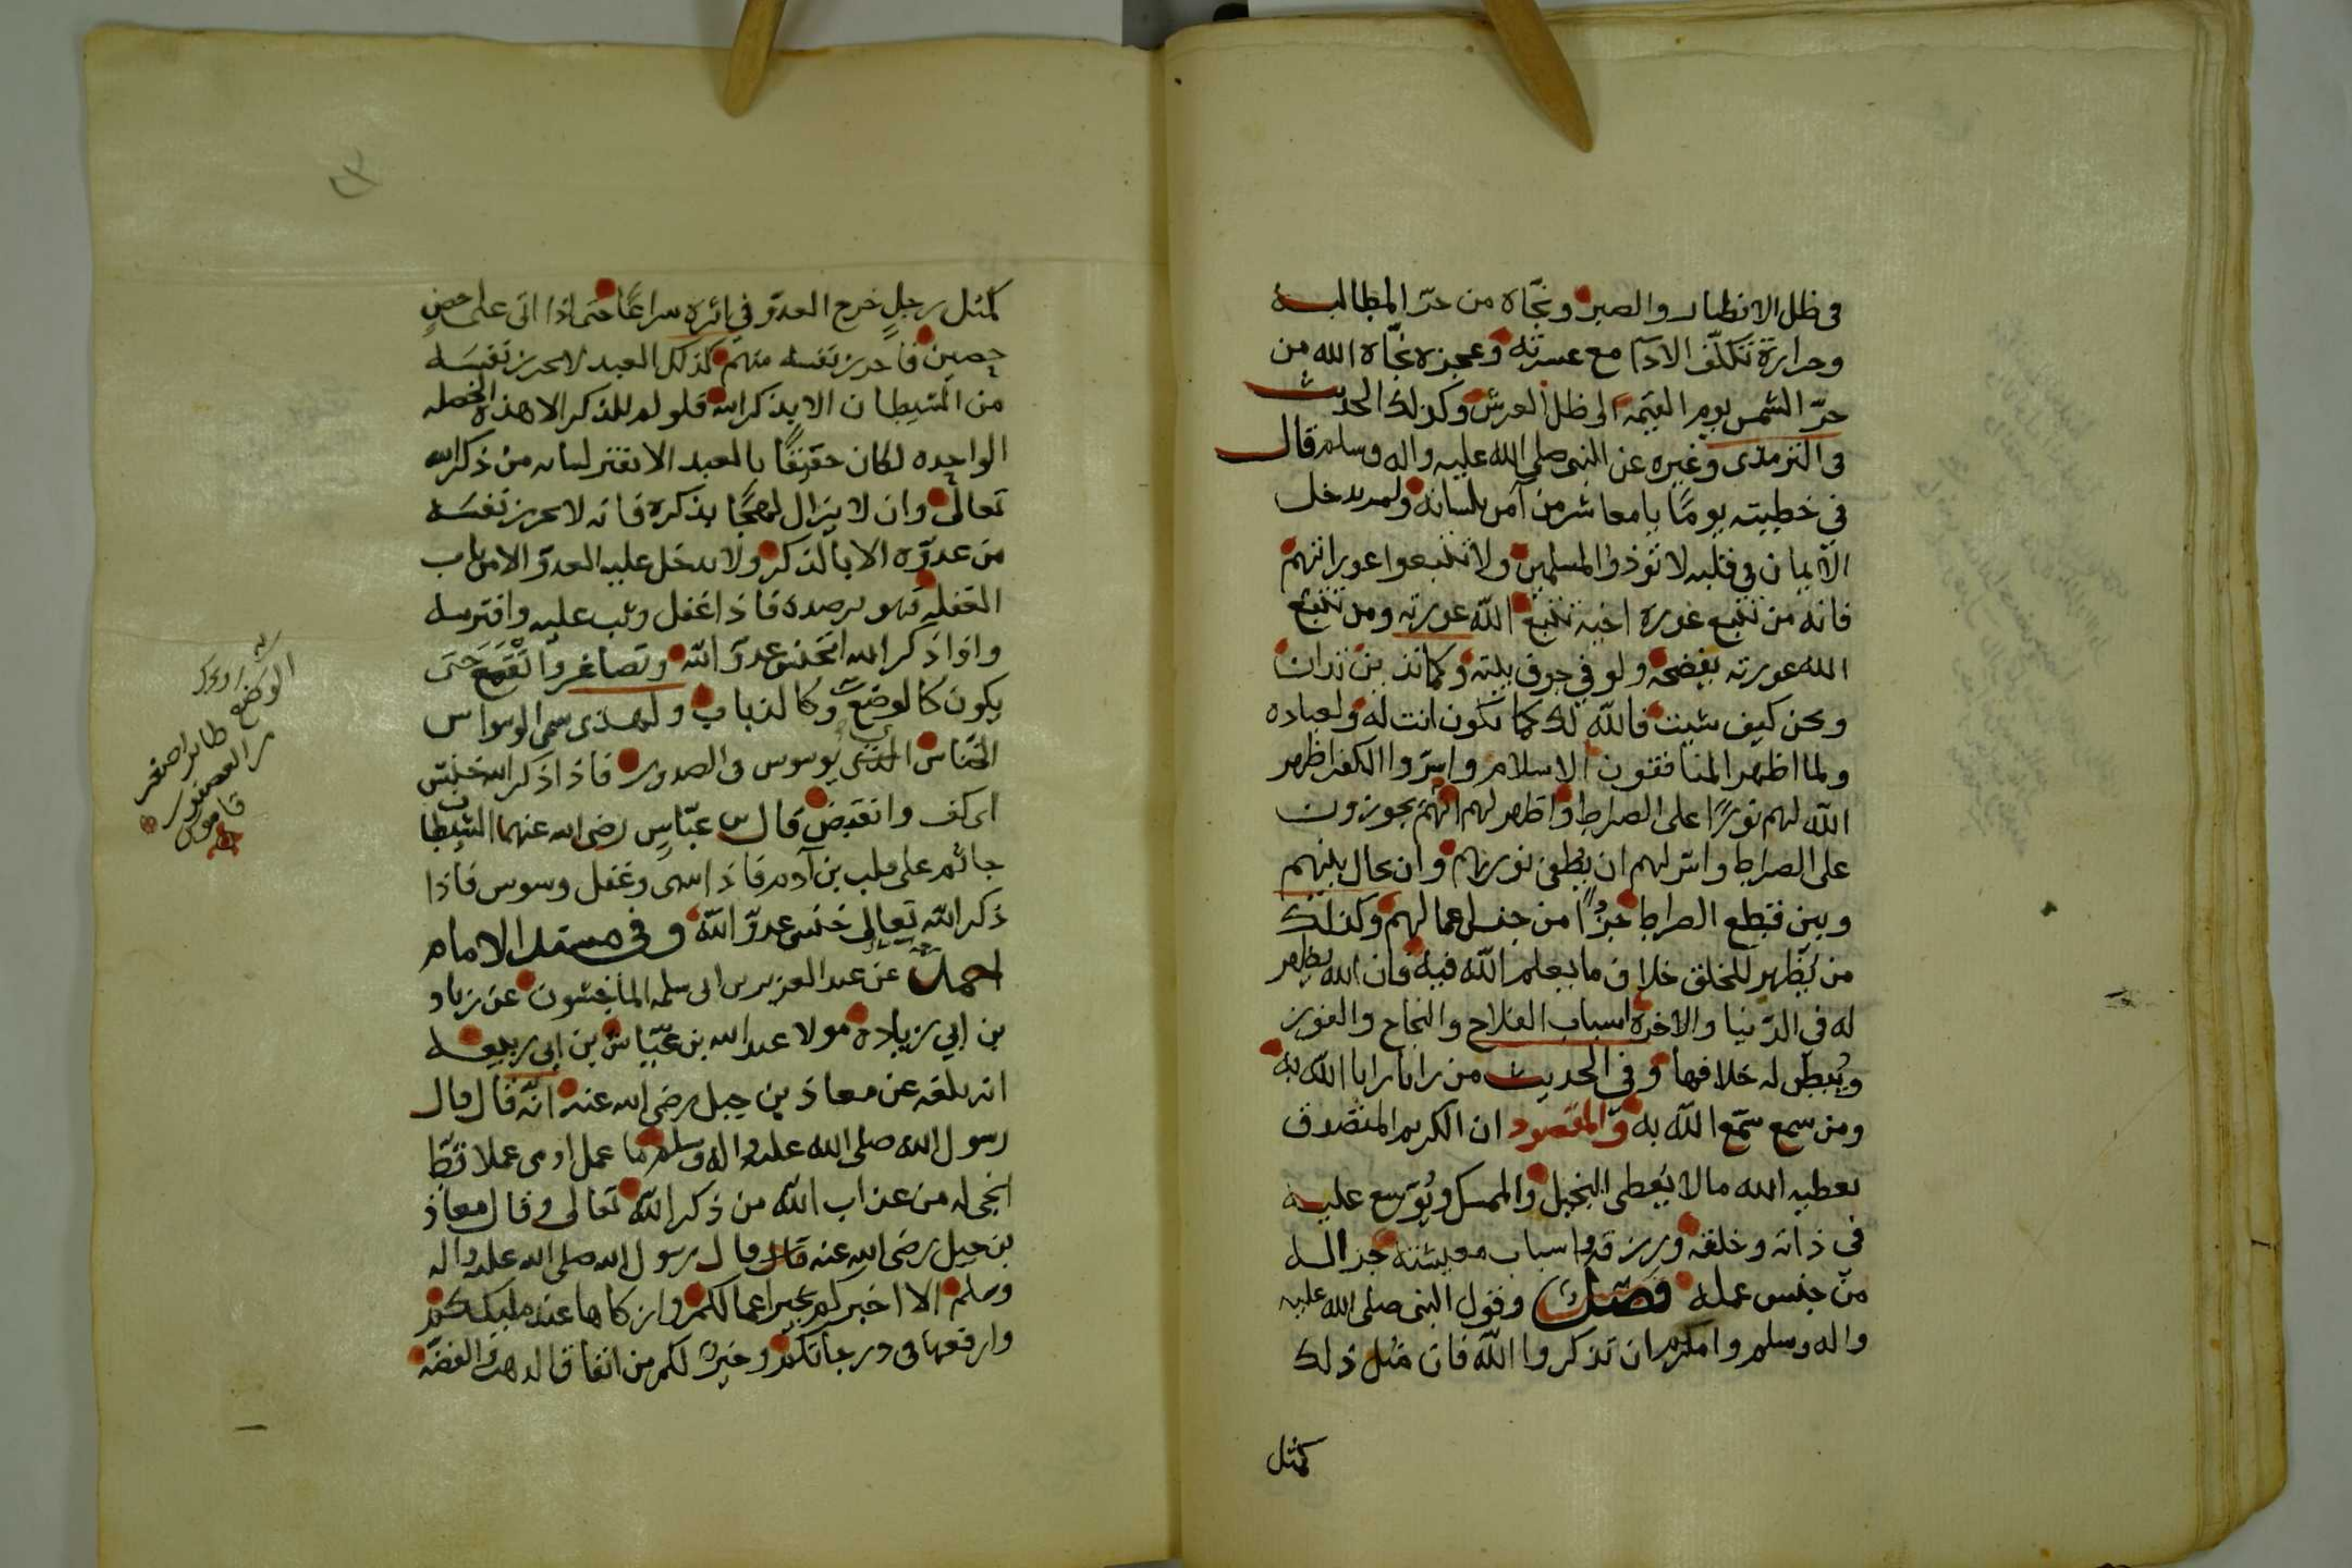 في ظل الانظار والصبر ونجّاه من حرّ المطالبة
وحرارة تكلّف الادآ مع عسرته وعجزه نجّاه الله من
حرّ الشمس يوم القيمة الى ظل العرش وكذلك الحديث
في الترمذى وغيره عن النبي صلى الله عليه واله وسلم قال
في خطبته يومًا يا معاشر من آمن بلسانه ولم يدخل
الايمان في قلبه لا تؤذوا المسلمين ولا تتبعوا عوراتهم
فانه من تتبع عورة اخيه تتبع الله عورته ومن تتبع
الله عورته يفضحه ولو في جوف بيته وكما تدين تدان
وكن كيف شيت فالله لك كما تكون انت له ولعباده
ولما اظهر المنافقون الاسلام واسرّوا الكفر اظهر
الله لهم نورًا على الصراط واظهر لهم انهم يجوزون
على الصراط واسّر لهم ان يطفي نورهم وان يحال بينهم
وبين قطع الصراط جزًا من جنس اعمالهم وكذلك
من يظهر للخلق خلاف ما يعلم الله فيه فان الله يظهر
له في الدّنيا والاخرة اسباب الفلاح والنجاح والفوز
ويُبطن له خلافها وفي الحديث من رايا رايا الله به
ومن سمع سمّع الله به والمقصود ان الكريم المتصدق
يعطيه الله مالا يُعطى البخيل والممسك ويُوسع عليه
في ذاته وخلقه ورزقه واسباب معيشته جزا له
من جنس عمله فصل وقول النبي صلى الله عليه
واله وسلم وامركم ان تذكروا الله فان مثل ذلك
كمثل
كمثل رجلٍ خرج العدوّ في اثره سراعًا حتى اذا اتى على حصنٍ
حصين فاحرز نفسه منهم كذلك العبد لا يحرز نفسَه
من الشيطان الا بذكر الله فلو لم للذكر الا هذه الخصله
الواحده لكان حقيقًا بالعبد الا يفتر لسانه من ذكر الله
تعالى وان لا يزال لهجًا بذكره فانه لا يحرز نفسَه
من عدوّه الا بالذكر ولا يدخل عليه العدوّ الا من باب
الغفله فهو يرصده فاذا غفل وثب عليه وافترسه
واذا ذكر الله انخنس عدوّ الله وتصاغر وانقمع حتى
يكون كالوضع وكالذباب ولهذى سمى الوسواس
الخناس الذي يوسوس في الصدور فاذا ذكر الله خنس
اى كف وانقبض قال بن عبّاسٍ رضى الله عنهما الشيطان
جاثم على قلب بن آدم فاذا سهى وغفل وسوس فاذا
ذكر الله تعالى خنس عدوّ الله وفي مسند الامام
احمد عن عبد العزيز بن ابى سلمه الماجشون عن زياد
بن ابي زياده مولا عبد الله بن عيّاش بن ابي ربيعه
انه بلغه عن معاذ بن جبل رضى الله عنه انّه قال قال
رسول الله صلى الله عليه واله وسلم ما عمل ادمى عملا قطّ
انجى له من عذاب الله من ذكر الله تعالى وقال معاذ
بن جبل رضى الله عنه قال قال رسول الله صلى الله عليه واله
وسلم الا اخبركم بخير اعمالكم وازكاها عند مليككم
وارفعها في درجاتكم وخيرٌ لكم من انفاق الذهب والفضّه
الوضع
طائر اصغر
من العصفور
قاموس